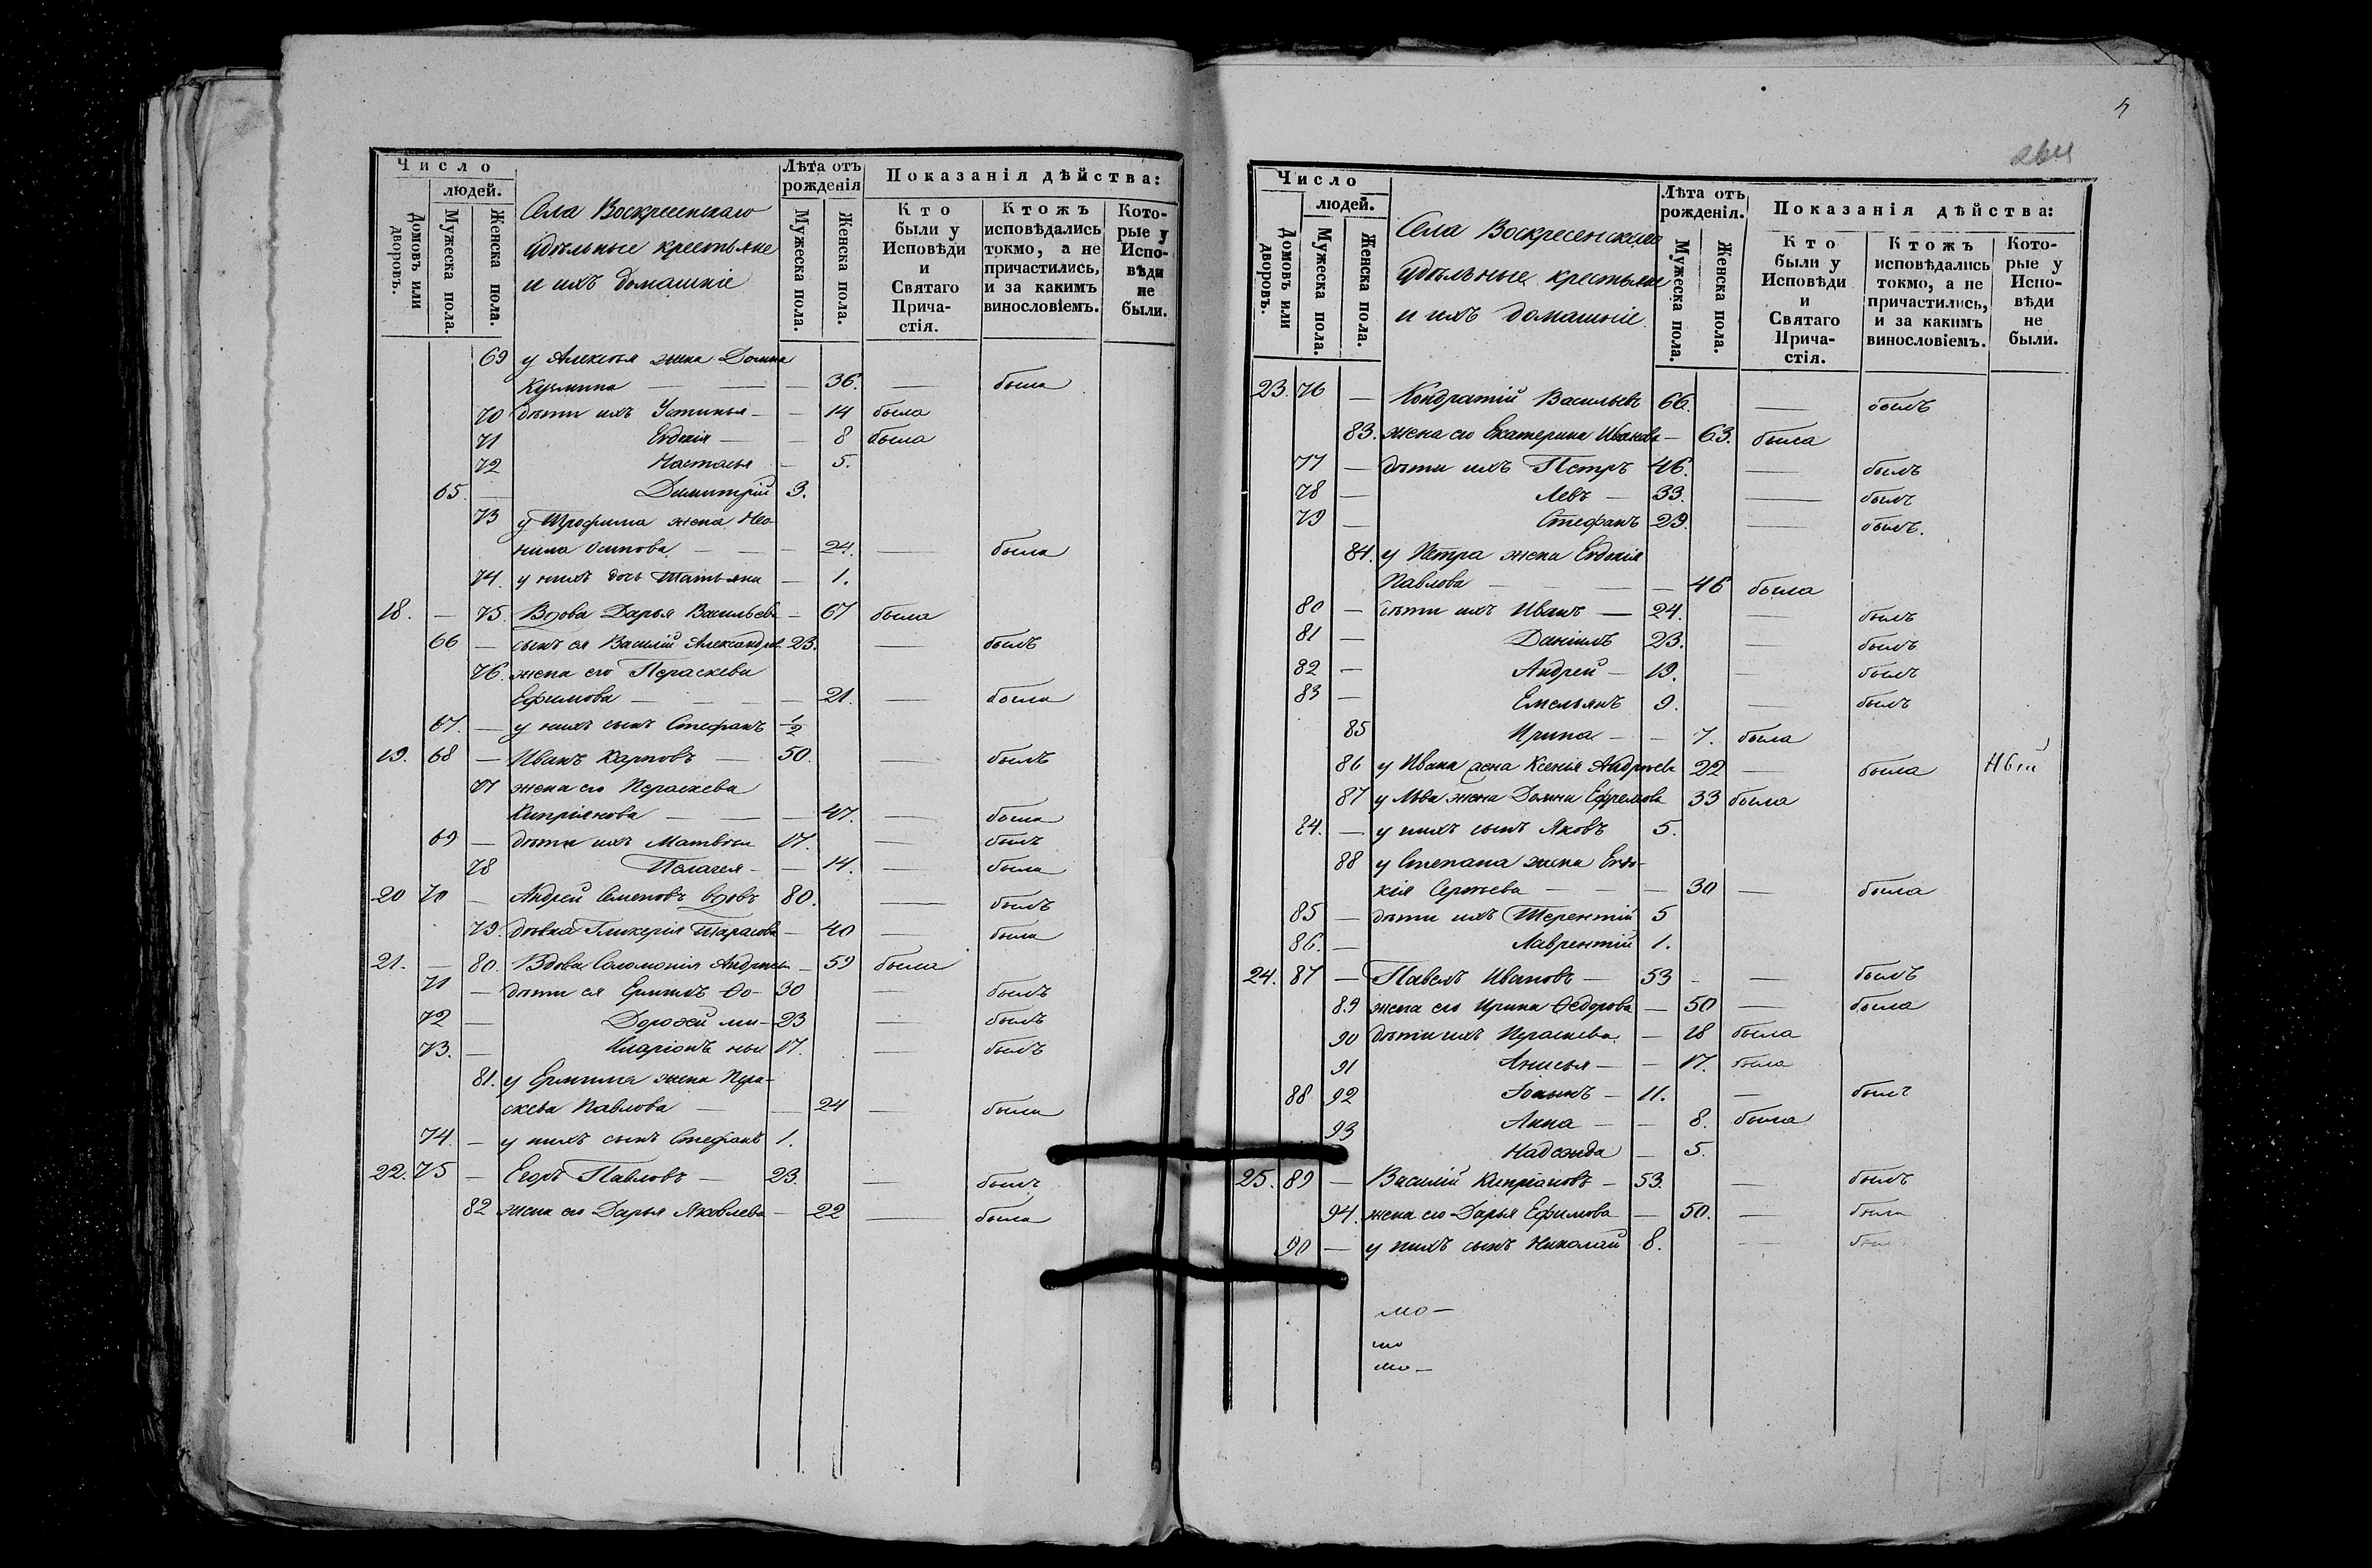 Число
людей.
Домовъ или дворовъ.
Мужеска пола.
Женска пола.
Села Воскресенскаго
удѣльные крестьяне
и ихъ домашніе
Лѣта отъ рожденія
Мужеска пола.
Женска пола.
Показанія дѣйства:
Кто были у Исповѣди и Святаго Прича-стія.
Ктожъ исповѣдались токмо, а не причастились, и за какимъ винословіемъ.
Кото-рые у Испо-вѣди не были.
69 у Алексѣя жена Домна
Кузмина — — — 36. — была
70 дѣти ихъ Устинья — — 14 была
71 Евдокія — — 8 была
72 Настасья — 5.
65. — Димитрій 3.
73 у Трофима жена Нео-
нила Осипова — — — 24. — была
74. у нихъ дочь Татьяна — 1.
18. — 75. Вдова Дарья Васильева — 67 была
66 — сынъ ея Василій Александров. 23. — былъ
76. жена его Параскева
Ефимова — — — — 21. — была
67. — у нихъ сынъ Стефанъ 1/2
19. 68 — Иванъ Карповъ — 50. — былъ
77 жена его Параскева
Кипріянова — — — 47. — была
69 — дѣти ихъ Матвѣй 17. — былъ
78 Пелагея — — 14. — была
20 70 — Андрей Семеновъ вдовъ 80. — былъ
79. дѣвка Гликерія Тарасова — 40 — была
21. — 80. Вдова Соломонія Андреева — 59 была
71 — дѣти ея Ермилъ Ѳо- 30 — былъ
72 — Дороѳей ми- 23 — былъ
73. — Иларіонъ ны 17. — былъ
81. у Ермила жена Пара-
скева Павлова — — 24 — была
74. — у нихъ сынъ Стефанъ 1.
22. 75 — Егоръ Павловъ — 23. — былъ
82 жена его Дарья Яковлева — 22 — была
Число
людей.
Домовъ или дворовъ.
Мужеска пола.
Женска пола.
Села Воскресенскаго
удѣльные крестьяне
и ихъ домашніе.
Лѣта отъ рожденія.
Мужеска пола.
Женска пола.
Показанія дѣйства:
Кто были у Исповѣди и Святаго Прича-стія.
Ктожъ исповѣдались токмо, а не причастились, и за какимъ винословіемъ.
Кото-рые у Испо-вѣди не были.
23. 76 — Кондратій Васильевъ 66. — былъ
83. жена его Екатерина Иванова — 63. была
77 — дѣти ихъ Петръ 46. — былъ
78 — Левъ — 33. — былъ
79 — Стефанъ 29. — былъ.
84. у Петра жена Евдокія
Павлова — — — — 46 была
80 — дѣти ихъ Иванъ — 24. — былъ
81 — Даніилъ 23. — былъ
82 — Андрей — 19. — былъ
83 — Емельянъ 9. — былъ
85 Ирина — — 7. была
86 у Ивана жена Ксенья Андреева 22 — была
87 у Льва жена Домна Ефремова 33 была
84. — у нихъ сынъ Яковъ 5.
88 у Степана жена Евдо-
кія Сергѣева — — — 30 — была
85 — дѣти ихъ Терентій 5
86. — Лаврентій 1.
24. 87 — Павелъ Ивановъ — 53 — — былъ
89 жена его Ирина Ѳедорова — 50 — была
90 дѣти ихъ Параскева — 18 была
91 Анисья — — 17. была
88 92 Іоаннъ — 11. — былъ
93 Анна — — 8. была
Надежда — 5.
25. 89 — Василій Кипріановъ — 53. — былъ
94. жена его Дарья Ефимова — 50. — была
90 — у нихъ сынъ Николай 8. — былъ